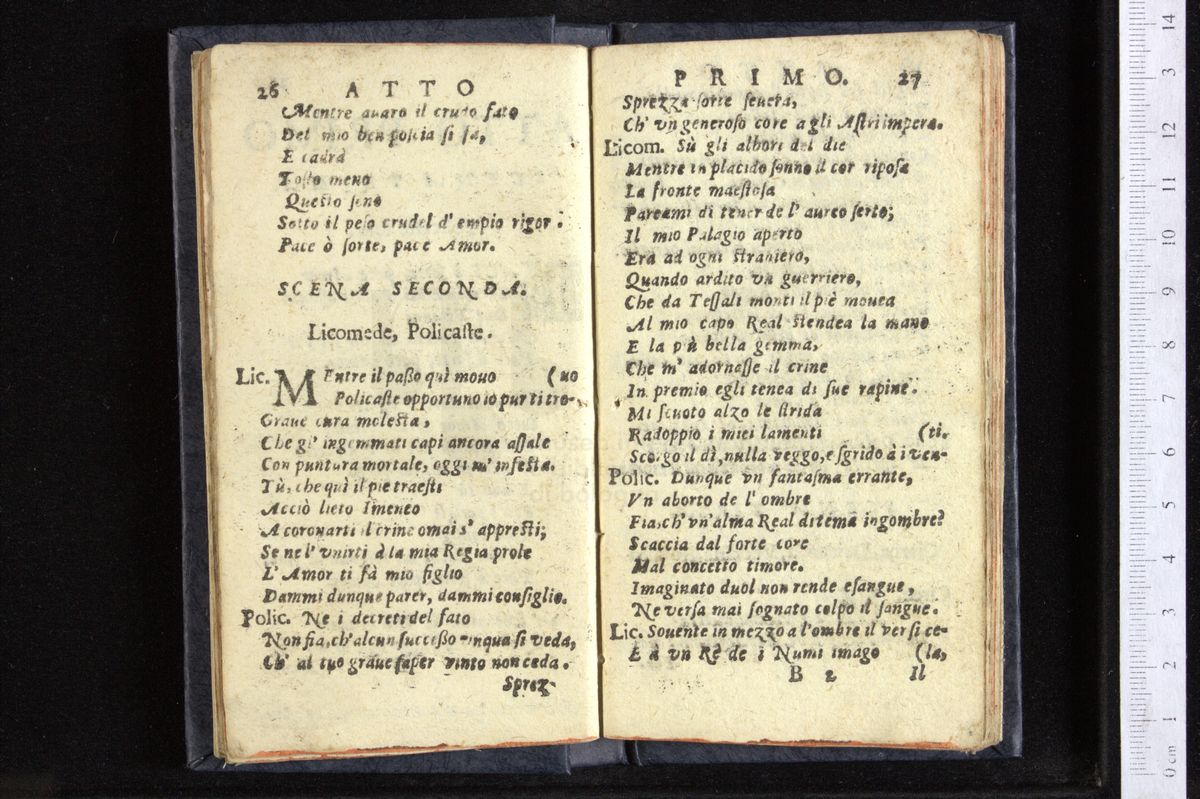 26 ATTO
Mentre auaro il crudo fato
Del mio ben poscia si fà,
E cadrà
Tosto meno
Questo seno
Sotto il peso crudel d' empio rigor.
Pace ò sorte, pace Amor.
SCENA SECONDA.
Licomede, Policaste.
Lic. MEntre il passo quì mouo (uo
Policaste opportuno io pur ti tro-
Graue cura molesta,
Che gl' ingemmati capi ancora assale
Con puntura mortale, oggi m' infesta.
Tù, che quì il pie traesti
Acciò lieto Imeneo
A coronarti il crine omai s' appresti;
Se ne l' vnirti à la mia Regia prole
L' Amor ti fà mio figlio
Dammi dunque parer, dammi consiglio.
Polic. Ne i decreti del fato
Non fia, ch' alcun successo vnqua si veda,
Ch' al tuo graue saper vinto non ceda.
Sprez-
PRIMO. 27
Sprezza sorte seuera,
Ch' vn generoso core a gli Astri impera.
Licom. Sù gli albori del die
Mentre in placido sonno il cor riposa
La fronte maestosa
Pareami di tener de l' aureo serto;
Il mio Palagio aperto
Era ad ogni straniero,
Quando ardito vn guerriero,
Che da Tessali monti il piè mouea
Al mio capo Real stendea la mano
E la più bella gemma,
Che m' adornasse il crine
In premio egli tenea di sue rapine.
Mi scuoto alzo le strida
Radoppio i miei lamenti (ti.
Scorgo il dì, nulla veggo, e sgrido à i ven-
Polic. Dunque vn fantasma errante,
Vn aborto de l' ombre
Fia, ch' vn' alma Real di tema ingombre?
Scaccia dal forte core
Mal concetto timore.
Imaginato duol non rende esangue,
Ne versa mai sognato colpo il sangue.
Lic. Souente in mezzo a l'ombre il ver si ce-
E à vn Rè de i Numi imago (la,
B 2 Il